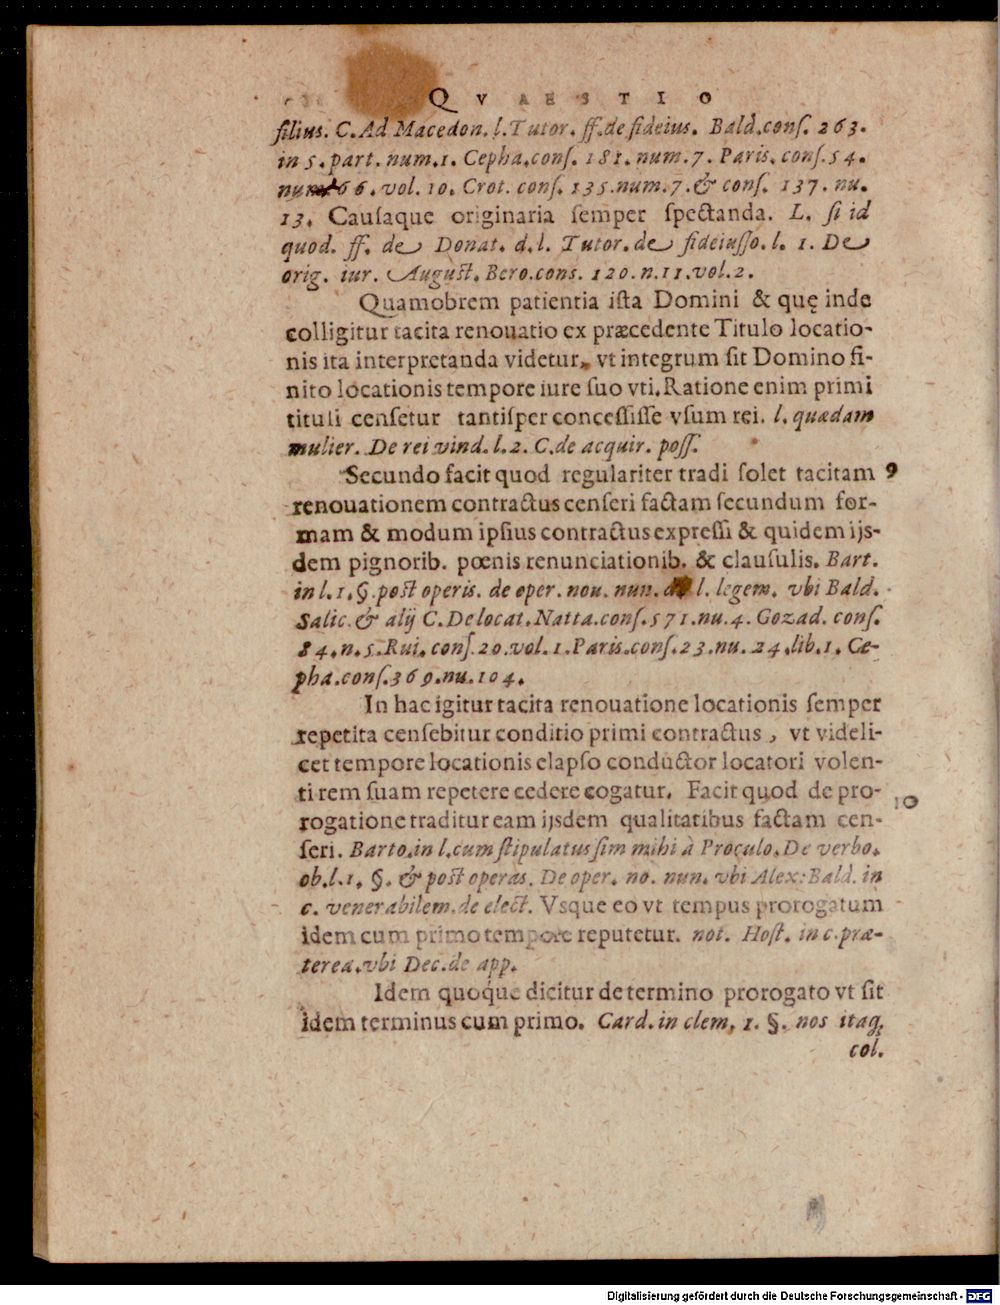 QVAESTIO
filius. C. Ad Macedon. l. Tutor. ff. de fideius. Bald. conſ. 263.
in 5. part. num. 1. Cepha. conſ. 181. num. 7. Paris. conſ. 54.
num. 66. vol. 10. Crot. conſ. 135. num. 7. & conſ. 137. nu.
13. Cauſaque originaria ſemper ſpectanda. L. ſi id
quod. ff. de Donat. d. l. Tutor. de fideiuſſo. l. 1. De
orig. iur. Auguſt. Bero. cons. 120. n. 11. vol. 2.
Quamobrem patientia iſta Domini & quę inde
colligitur tacita renouatio ex præcedente Titulo locatio-
nis ita interpretanda videtur, vt integrum ſit Domino fi-
nito locationis tempore iure ſuo vti. Ratione enim primi
tituli cenſetur tantiſper conceſſiſſe vſum rei. l. quædam
mulier. De rei vind. l. 2. C. de acquir. poſſ.
Secundo facit quod regulariter tradi ſolet tacitam 9
renouationem contractus cenſeri factam ſecundum for-
mam & modum ipſius contractus expreſſi & quidem ijs-
dem pignorib. pœnis renunciationib. & clauſulis. Bart.
in l. 1. §. poſt operis. de oper. nou. nun. l. legem. vbi Bald.
Salic. & alij C. De locat. Natta. conſ. 571. nu. 4. Gozad. conſ.
84. n. 5. Rui. conſ. 20. vol. 1. Paris. conſ. 23. nu. 24. lib. 1. Ce-
pha. conſ. 369. nu. 104.
In hac igitur tacita renouatione locationis ſemper
repetita cenſebitur conditio primi contractus, vt videli-
cet tempore locationis elapſo conductor locatori volen-
ti rem ſuam repetere cedere cogatur. Facit quod de pro- 10
rogatione traditur eam ijsdem qualitatibus factam cen-
ſeri. Barto. in l. cum ſtipulatus ſim mihi à Proculo. De verbo.
ob. l. 1. §. & poſt operas. De oper. no. nun. vbi Alex: Bald. in
c. venerabilem. de elect. Vsque eo vt tempus prorogatum
idem cum primo tempore reputetur. not. Hoſt. in c. præ-
terea. vbi Dec. de app.
Idem quoque dicitur de termino prorogato vt ſit
idem terminus cum primo. Card. in clem. 1. §. nos itaq.
col.
Digitalisierung gefördert durch die Deutsche Forschungsgemeinschaft - DFG